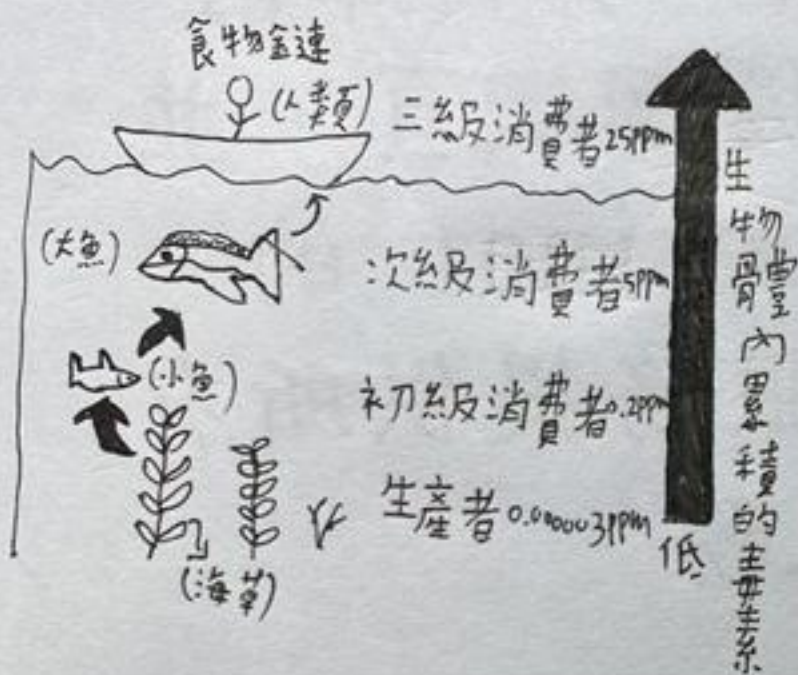 食物金連
(人類)
三級消費者25ppm
(大魚)
次級消費者5ppm
(小魚)
初級消費者0.2ppm
生產者0.000003ppm
(海草)
低
生物體內累積的毒素